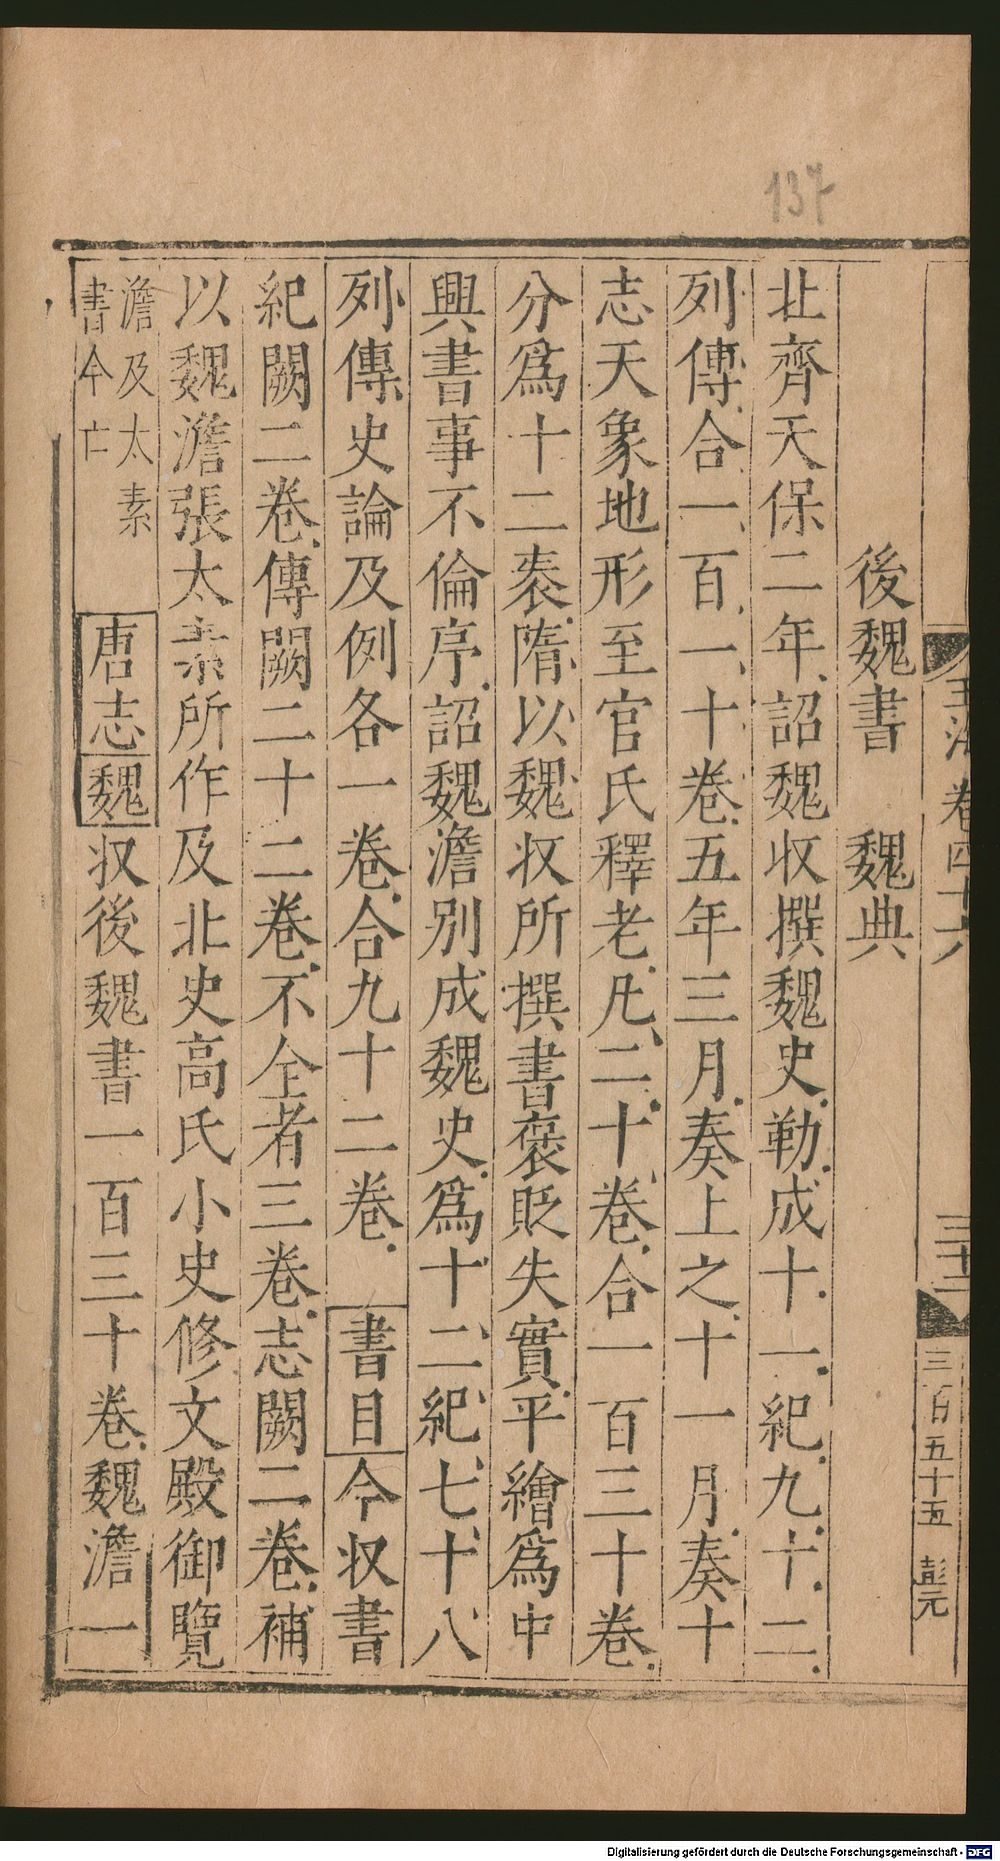 137
玉海 卷四十六
三十二
三百五十五 彭元
後魏書 魏典
北齊天保二年詔魏收撰魏史勒成十一紀九十二
列傳合一百一十卷五年三月奏上之十一月奏十
志天象地形至官氏釋老凡二十卷合一百三十卷
分爲十二袠隋以魏收所撰書褒貶失實平繪爲中
興書事不倫序詔魏澹別成魏史爲十二紀七十八
列傳史論及例各一卷合九十二卷 書目今收書
紀闕二卷傳闕二十二卷不仝者三卷志闕二卷補
以魏澹張太素所作及北史高氏小史修文殿御覽
澹及太素
書今亡
唐志魏收後魏書一百三十卷魏澹一
Digitalisierung gefördert durch die Deutsche Forschungsgemeinschaft - DFG